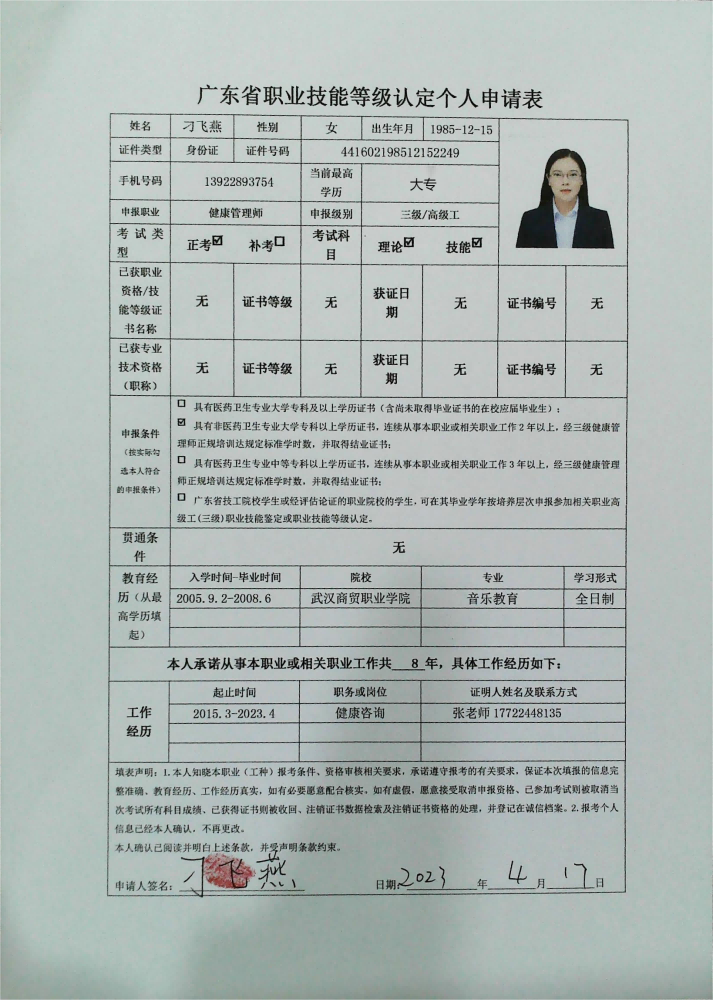 广东省职业技能等级认定个人申请表
姓名 刁飞燕 性别 女 出生年月 1985-12-15
证件类型 身份证 证件号码 441602198512152249
手机号码 13922893754 当前最高学历 大专
申报职业 健康管理师 申报级别 三级/高级工
考试类型 正考☑ 补考☐ 考试科目 理论☑ 技能☑
已获职业
资格/技
能等级证
书名称
无 证书等级 无 获证日期 无 证书编号 无
已获专业
技术资格
（职称）
无 证书等级 无 获证日期 无 证书编号 无
申报条件
（按实际勾
选本人符合
的申报条件）
☐ 具有医药卫生专业大学专科及以上学历证书（含尚未取得毕业证书的在校应届毕业生）；
☑ 具有非医药卫生专业大学专科及以上学历证书，连续从事本职业或相关职业工作2年以上，经三级健康管
理师正规培训达规定标准学时数，并取得结业证书；
☐ 具有医药卫生专业中等专科以上学历证书，连续从事本职业或相关职业工作3年以上，经三级健康管理
师正规培训达规定标准学时数，并取得结业证书；
☐ 广东省技工院校学生或经评估论证的职业院校的学生，可在其毕业学年按培养层次申报参加相关职业高
级工(三级)职业技能鉴定或职业技能等级认定。
贯通条件 无
教育经
历（从最
高学历填
起）
入学时间-毕业时间 院校 专业 学习形式
2005.9.2-2008.6 武汉商贸职业学院 音乐教育 全日制
本人承诺从事本职业或相关职业工作共 8 年，具体工作经历如下：
工作
经历
起止时间 职务或岗位 证明人姓名及联系方式
2015.3-2023.4 健康咨询 张老师 17722448135
填表声明：1.本人知晓本职业（工种）报考条件、资格审核相关要求，承诺遵守报考的有关要求，保证本次填报的信息完
整准确、教育经历、工作经历真实，如有必要愿意配合核实。如有虚假，愿意接受取消申报资格、已参加考试则被取消当
次考试所有科目成绩、已获得证书则被收回、注销证书数据检索及注销证书资格的处理，并登记在诚信档案。2.报考个人
信息已经本人确认，不再更改。
本人确认已阅读并明白上述条款，并受声明条款约束。
申请人签名： 刁飞燕 日期 2023 年 4 月 17 日